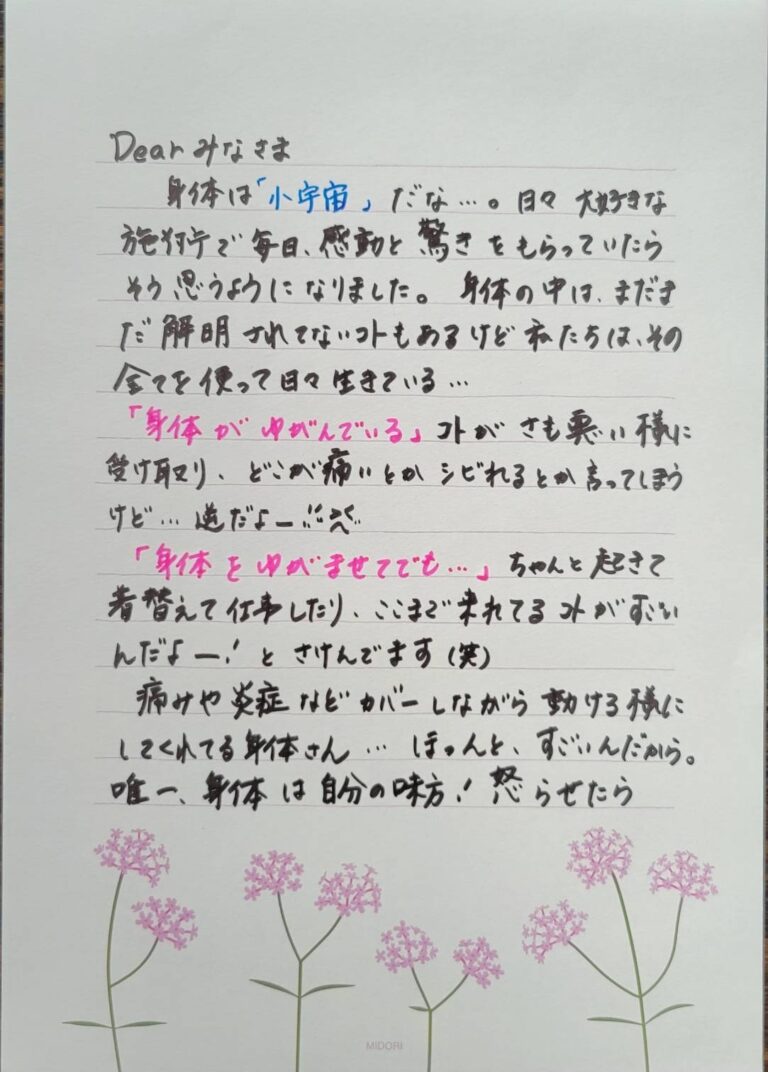 Dear みなさま
身体は「小宇宙」だな…。日々 大好きな
施術で毎日、感動と驚きをもらっていたら
そう思うようになりました。身体の中は、まだま
だ解明されてないコトもあるけど私たちは、その
全てを使って日々生きている…
「身体がゆがんでいる」コトがさも悪い様に
受け取り、どこが痛いとかシビれるとか言ってしまう
けど…逆だよー
「身体をゆがませてでも…」ちゃんと起きて
着替えて仕事したり、ここまで来れてるコトがすごい
んだよー!とさけんでます(笑)
痛みや炎症などカバーしながら動ける様に
してくれてる身体さん…ほんと、すごいんだから。
唯一、身体は自分の味方!怒らせたら
MIDORI